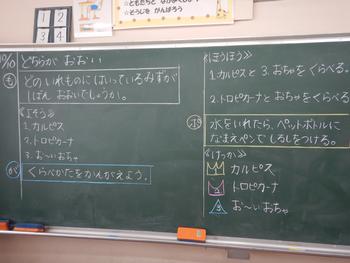 1 2
3 4
☆ともだちと なかよくしよう
☆そうじを がんばろう
どちらが おおい
も
どのいれものにはいっているみずが
いちばん おおいでしょうか。
《よそう》
1.カルピス
2.トロピカーナ
3.お～いおちゃ
が
くらべかたをかんがえよう。
《ほうほう》
1.カルピスと 3.おちゃをくらべる。
2.トロピカーナと おちゃをくらべる
ポ
水をいれたら、ペットボトルに
なまえペンでしるしをつける。
《けっか》
カルピス
トロピカーナ
3 お～いおちゃ